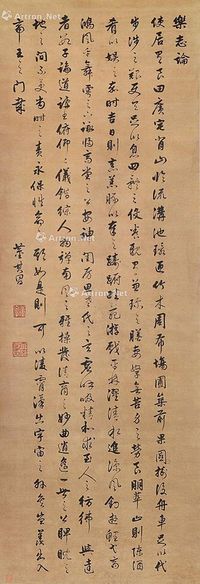 樂志論
使居有良田廣宅背山臨流溝池環匝竹木周布場圃築前果園樹後舟車足以代
步涉之難使令足以息四體之役養親有兼珍之膳妻孥無苦身之勞良朋萃止則陳酒
肴以娛之嘉時吉日則烹羔豚以奉之躊躇畦苑游戲平林濯清水追涼風釣游鯉弋高
鴻風于舞雩之下詠歸高堂之上安神閨房思老氏之玄虛呼吸精和求至人之彷彿與達
者數子論道講書俯仰二儀錯綜人物彈南風之雅操發清商之妙曲逍遙一世之上睥睨天
地之間不受當時之責永保性命之期如是則可以凌霄漢出宇宙之外矣豈羨夫入
帝王之門哉
董其昌